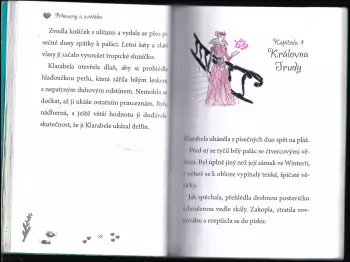 Princezny a zvířátka
Zvedla košíček s ulitami a vydala se přes pí-
sečné duny zpátky k paláci. Letní šaty a zlaté
vlasy jí začalo vysoušet tropické sluníčko.
Klarabela otevřela dlaň, aby si prohlédla
hlaďoučkou perlu, která zářila bílým leskem
s nepatrným duhovým odstínem. Nemohla se
dočkat, až ji ukáže ostatním princeznám. Byla
nádherná, a ještě větší hodnotu jí dodávala
skutečnost, že ji Klarabele ukázal delfín.
Kapitola 4
Královna
Trudy
Klarabela uháněla z písečných dun spět na pláž.
Před ní se tyčil bílý palác se čtvercovými vě-
žemi. Byl úplně jiný než její zámek ve Winterii,
z něhož se k obloze vypínaly tenké, špičaté vě-
žičky.
Jak spěchala, přehlédla drobnou postavičku
schoulenou vedle skály. Zakopla, ztratila rov-
nováhu a rozplácla se do písku.